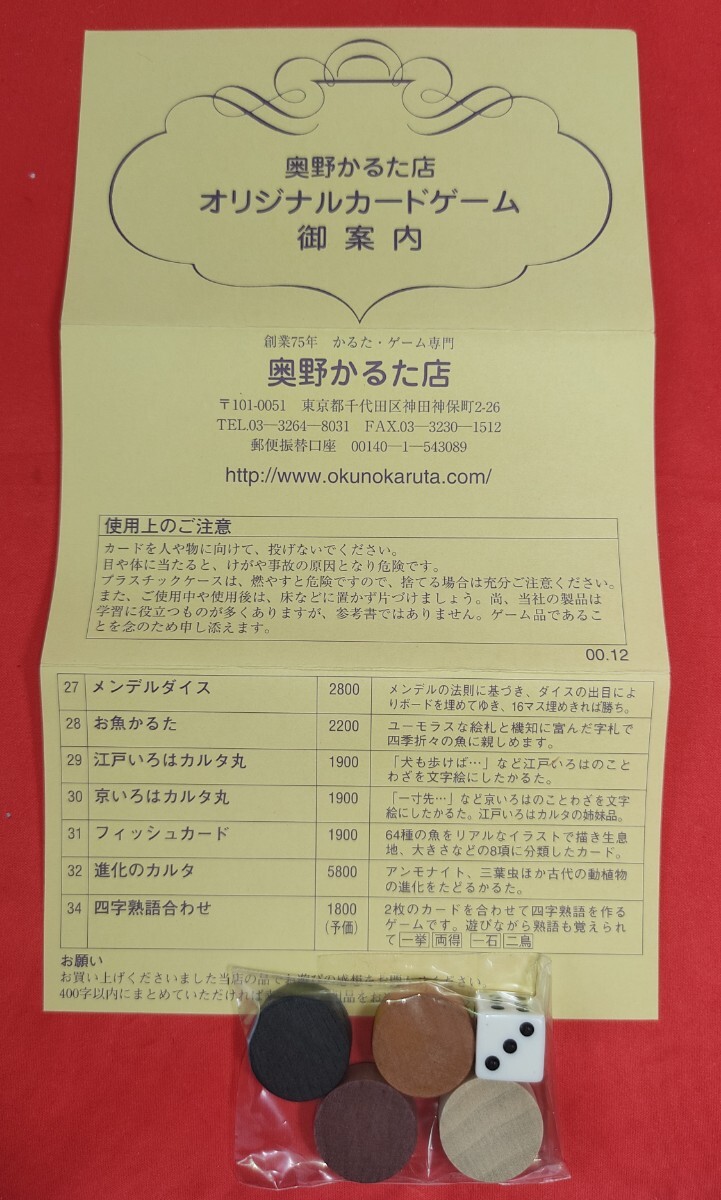 奥野かるた店
オリジナルカードゲーム
御案内
創業75年 かるた・ゲーム専門
奥野かるた店
〒101-0051 東京都千代田区神田神保町2-26
TEL.03―3264―8031 FAX.03―3230―1512
郵便振替口座 00140―1―543089
http://www.okunokaruta.com/
使用上のご注意
カードを人や物に向けて、投げないでください。
目や体に当たると、けがや事故の原因となり危険です。
プラスチックケースは、燃やすと危険ですので、捨てる場合は充分ご注意ください。
また、ご使用中や使用後は、床などに置かず片づけましょう。尚、当社の製品は
学習に役立つものが多くありますが、参考書ではありません。ゲーム品であるこ
とを念のため申し添えます。
00.12
27 メンデルダイス 2800 メンデルの法則に基づき、ダイスの出目によ
りボードを埋めてゆき、16マス埋めきれば勝ち。
28 お魚かるた 2200 ユーモラスな絵札と機知に富んだ字札で
四季折々の魚に親しめます。
29 江戸いろはカルタ丸 1900 「犬も歩けば…」など江戸いろはのこと
わざを文字絵にしたかるた。
30 京いろはカルタ丸 1900 「一寸先…」など京いろはのことわざを文字
絵にしたかるた。江戸いろはカルタの姉妹品。
31 フィッシュカード 1900 64種の魚をリアルなイラストで描き生息
地、大きさなどの8項に分類したカード。
32 進化のカルタ 5800 アンモナイト、三葉虫ほか古代の動植物
の進化をたどるかるた。
34 四字熟語合わせ 1800 2枚のカードを合わせて四字熟語を作る
(予価) ゲームです。遊びながら熟語も覚えられ
て 一挙 両得 一石 二鳥
お願い
お買い上げくださいました当店の品でお遊びの感想をお聞
400字以内にまとめていただければ